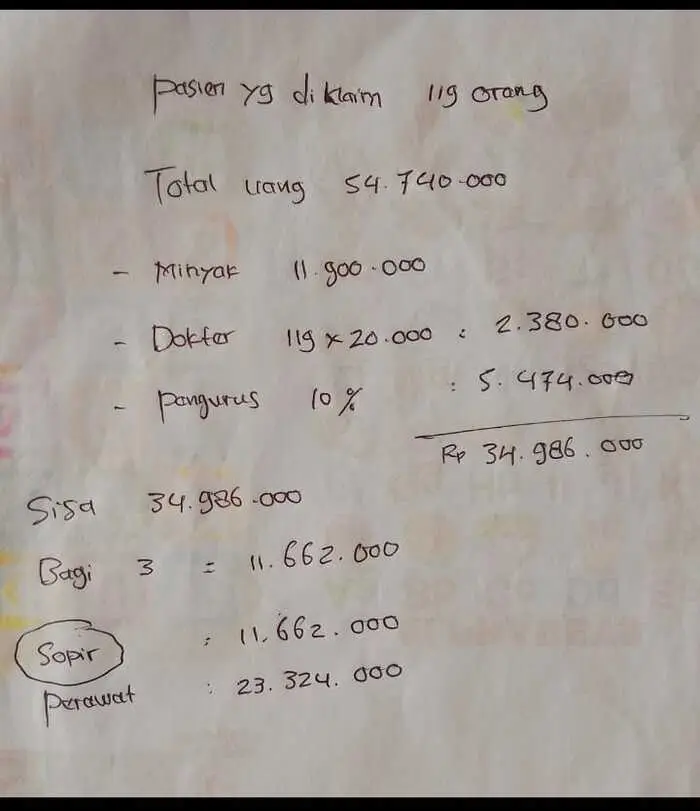 Pasien yg di klaim 119 orang
Total uang 54.740.000
- Minyak 11.900.000
- Dokter 119 x 20.000 : 2.380.000
- Pengurus 10% : 5.474.000
Rp 34.986.000
Sisa 34.986.000
Bagi 3 = 11.662.000
Sopir : 11.662.000
Perawat : 23.324.000